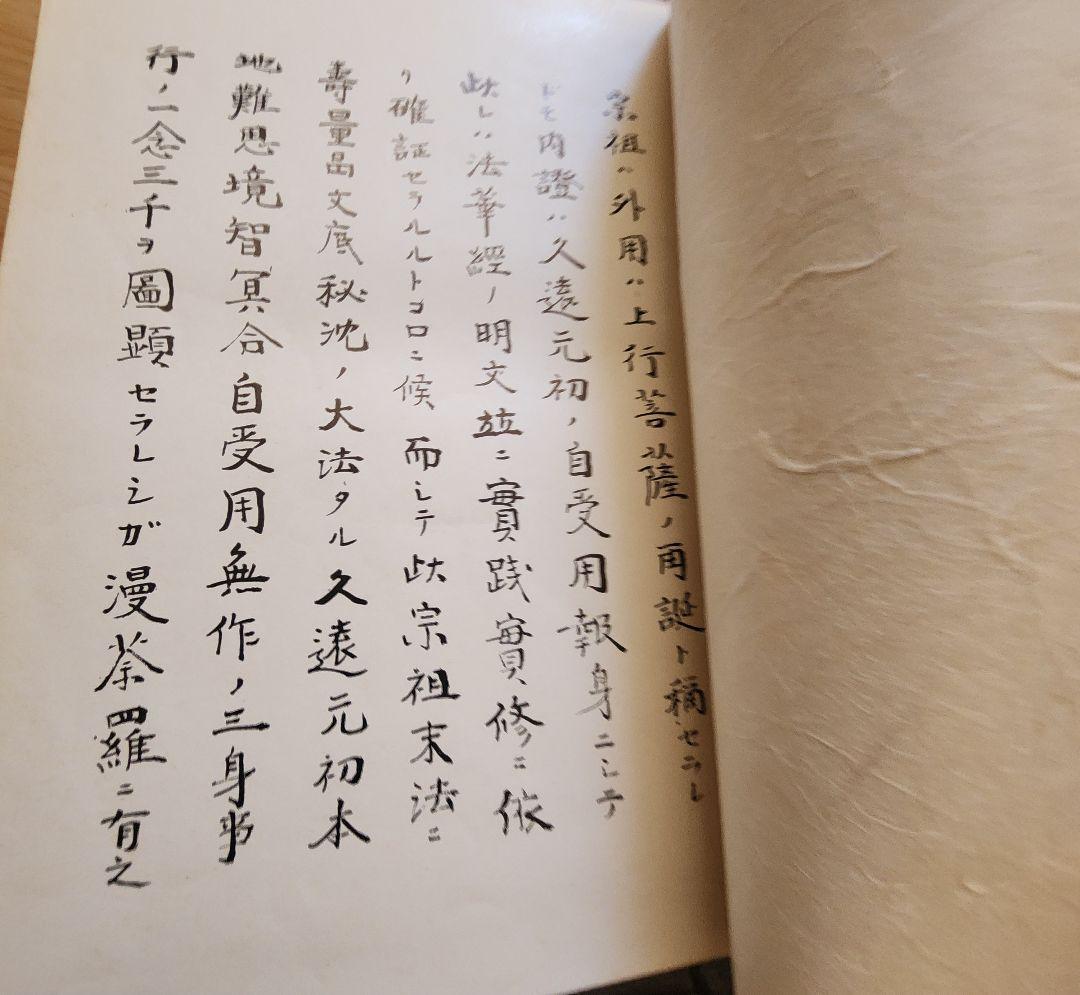 宗祖ハ外用ハ上行菩薩ノ再誕ト稱セラレ
ドモ内證ハ久遠元初ノ自受用報身ニシテ
此レハ法華經ノ明文並ニ實践實修ニ依
リ確証セラルルトコロニ候而シテ此宗祖末法ニ
壽量品文底秘沈ノ大法タル久遠元初本
地難思境智冥合自受用無作ノ三身事
行ノ一念三千ヲ圖顕セラレシガ漫荼羅ニ有之